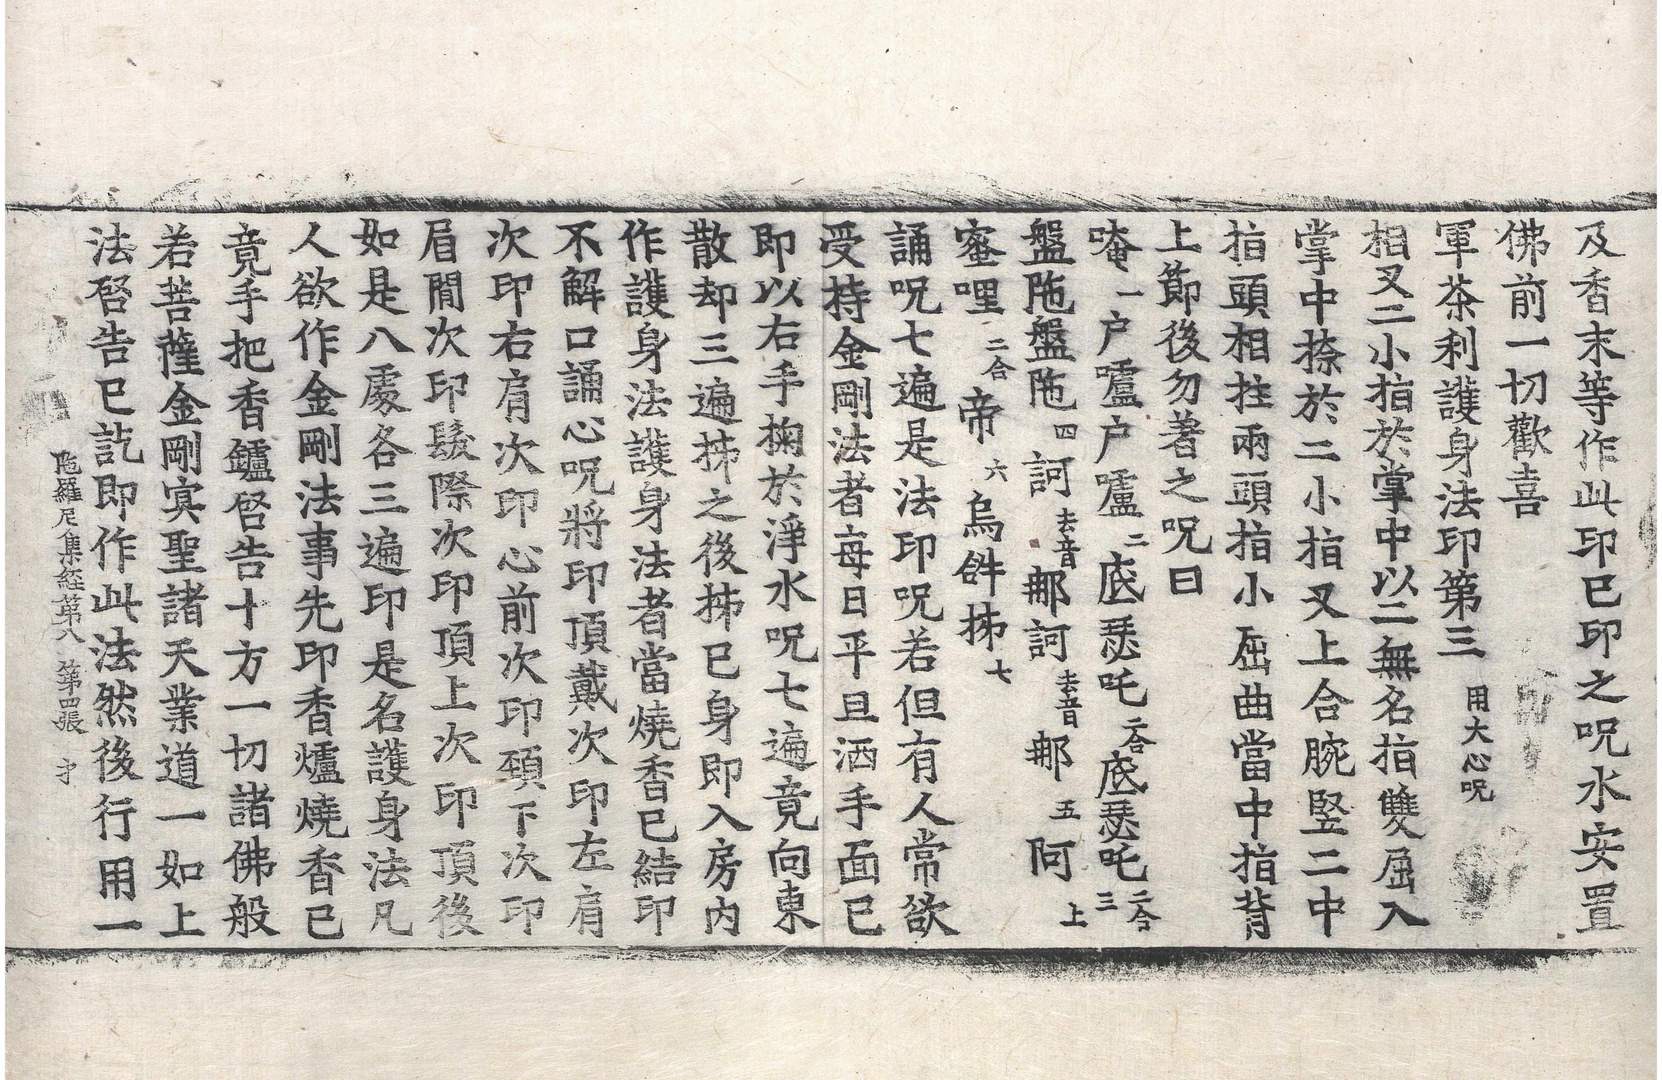 及香末等作此印已印之呪水安置
佛前一切歡喜
軍茶利護身法印第三 用大心呪
相叉二小指於掌中以二無名指雙屈入
掌中捺於二小指叉上合腕竪二中
指頭相拄兩頭指小屈曲當中指背
上節後勿著之呪曰
唵一户嚧户嚧二底瑟吒二合底瑟吒二合三
盤陁盤陁四訶去音那訶去音那五阿上
蜜哩二合帝六烏𤙖㧊七
誦呪七遍是法印呪若但有人常欲
受持金剛法者每日平旦洒手面已
即以右手掬於淨水呪七遍竟向東
散却三遍㧊之後㧊已身即入房内
作護身法護身法者當燒香已結印
不解口誦心呪將印頂戴次印左肩
次印右肩次印心前次印頚下次印
眉間次印髮際次印頂上次印頂後
如是八處各三遍印是名護身法凡
人欲作金剛法事先印香爐燒香已
竟手把香鑪啓告十方一切諸佛般
若菩薩金剛冥聖諸天業道一如上
法啓告已訖即作此法然後行用一
陁羅尼集經第八 第四張 才